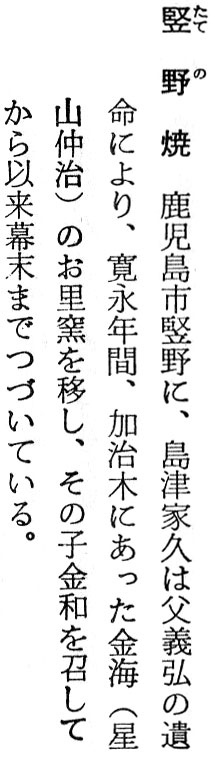 竪野焼　鹿児島市竪野に、島津家久は父義弘の遺
命により、寛永年間、加治木にあった金海（星
山仲治）のお里窯を移し、その子金和を召して
から以来幕末までつづいている。